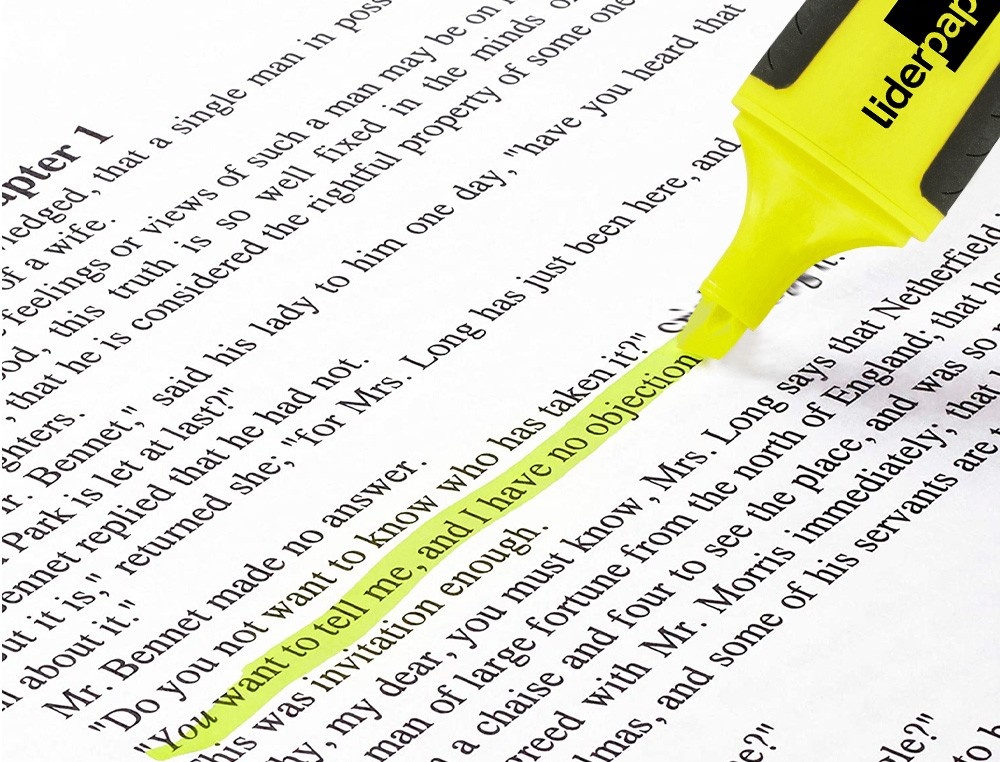 liderpap
apter 1
ledged, that a single man in poss
of a wife.
feelings or views of such a man may be on
ood, this truth is so well fixed in the minds
, that he is considered the rightful property of some one
ghters.
r. Bennet," said his lady to him one day, "have you heard that
Park is let at last?"
ennet replied that he had not.
ut it is," returned she; "for Mrs. Long has just been here, and
about it."
Mr. Bennet made no answer.
"Do you not want to know who has taken it?"
"You want to tell me, and I have no objection
his was invitation enough.
hy, my dear, you must know, Mrs. Long says that Netherfield
man of large fortune from the north of England; that
a chaise and four to see the place, and was so
greed with Mr. Morris immediately; that
lmas, and some of his servants are
e?"
gle?"
to